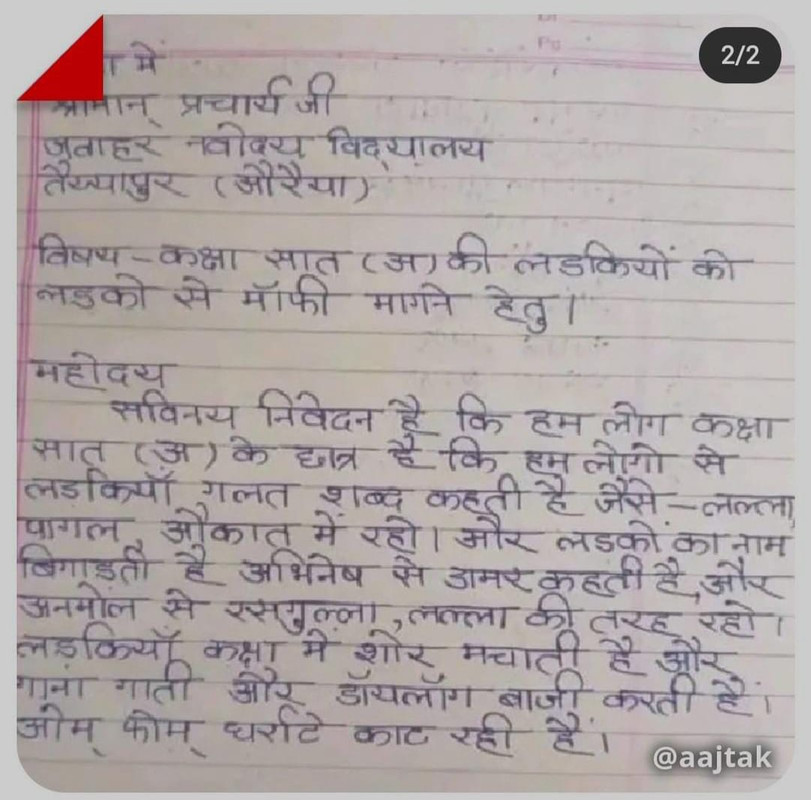 2/2
में
श्रीमान् प्रचार्य जी
जवाहर नवोदय विद्यालय
तैय्यापुर (औरैया)
विषय - कक्षा सात (अ) की लडकियों को
लडको से मॉफी मागने हेतु।
महोदय
सविनय निवेदन है कि हम लोग कक्षा
सात (अ) के छात्र है कि हम लोगो से
लडकियाँ गलत शब्द कहती है जैसे - लल्ला,
पागल, औकात में रहो। और लडकों का नाम
बिगाड़ती है अभिनेष से डामर कहती है, और
अनमोल से रसगुल्ला, लल्ला की तरह रहो।
लडकियाँ कक्षा में शोर मचाती है और
गाना गाती और डॉयलॉग बाजी करती हैं।
ओम् फोम् धर्राटे काट रही हैं।
@aajtak